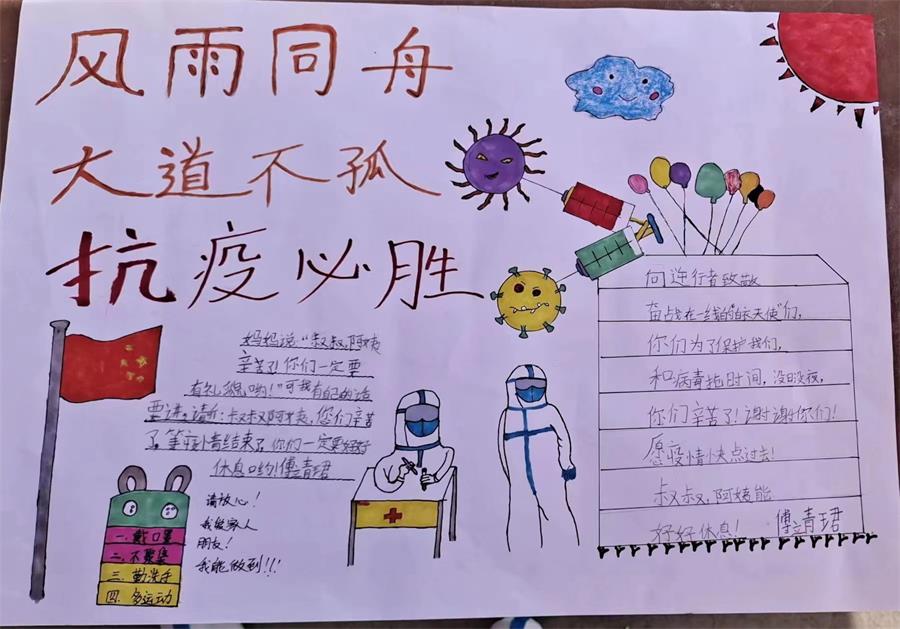 风雨同舟
大道不孤
抗疫必胜
妈妈说:“叔叔,阿姨
辛苦了!你们一定要
有礼貌哟!”可我有自己的话
要讲。请听:叔叔阿姨,您们辛苦
了,等疫情结束了,你们一定要好好
休息哟!傅靖珺
请放心!
我能
朋友!
我能做到!!!
一.戴口罩
二.不聚集
三.勤洗手
四.多运动
向逆行者致敬
奋战在一线的“白衣天使”们,
你们为了保护我们,
和病毒抢时间,没日没夜,
你们辛苦了!谢谢你们!
愿疫情快点过去!
叔叔,阿姨能
好好休息! 傅靖珺